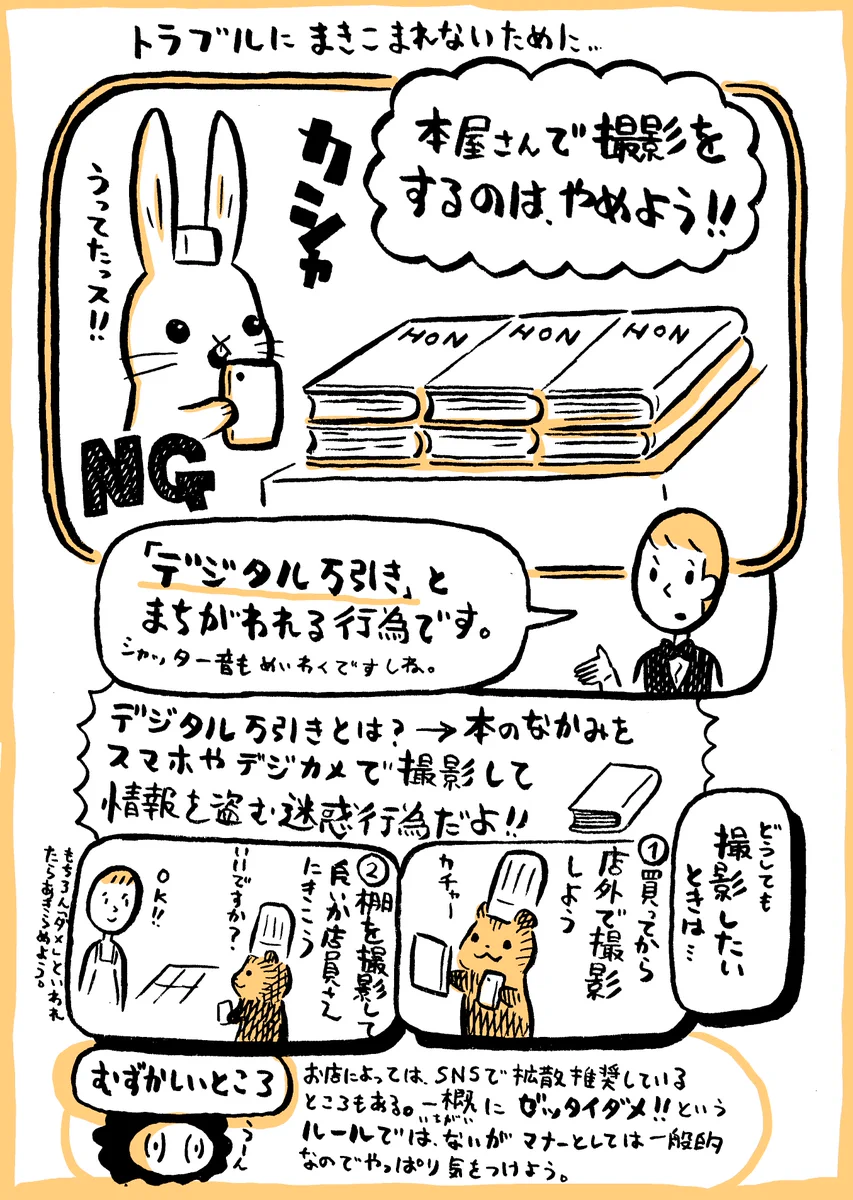 トラブルに まきこまれないために…
本屋さんで撮影を
するのは、やめよう!!
カシャ
うってたっス!!
HON HON HON
NG
「デジタル万引き」と
まちがわれる行為です。
シャッター音もめいわくですしね。
デジタル万引きとは?→本のなかみを
スマホやデジカメで撮影して
情報を盗む迷惑行為だよ!!
どうしても
撮影したい
ときは…
①買ってから
店外で撮影
しよう
カチャー
②棚を撮影して
良いか店員さん
にきこう
いいですか?
OK!!
もちろん「ダメ」といわれ
たらあきらめよう。
むずかしいところ
うーん
お店によっては、SNSで拡散推奨している
ところもある。一概にゼッタイダメ!!という
いちがい
ルールでは、ないがマナーとしては一般的
なのでやっぱり気をつけよう。